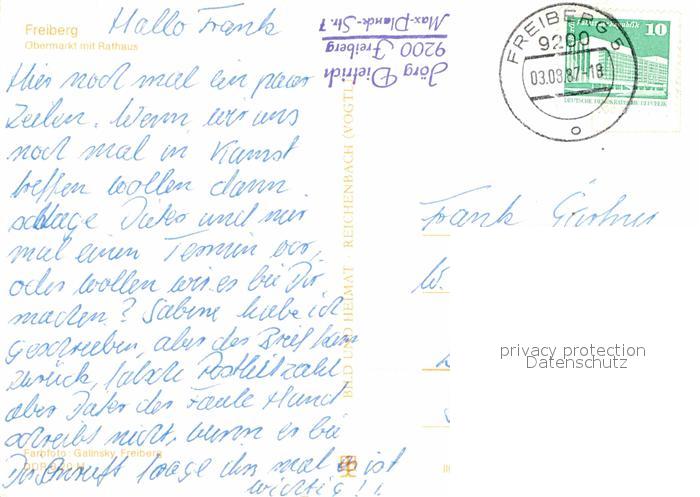 Freiberg
Obermarkt mit Rathaus
Hallo Frank
Hier noch mal ein paar
Zeilen. Wenn wir uns
noch mal in Kamst
treffen wollen dann
schlage Dieter und mir
mal einen Termin vor,
oder wollen wir es bei Dir
machen? Sabine habe ich
geschrieben, aber der Brief kam
zurück, falsche Postleitzahl
aber Dieter der Faule Hund
schreibt nicht, wenn er bei
Dir anruft sage ihm mal es ist
wichtig!!
Farbfoto: Galinsky, Freiberg
BILD UND HEIMAT · REICHENBACH (VOGTL
Jörg Dietrich
9200 Freiberg
Max-Planck-Str. 7
FREIBERG 5
9200
03.08.87-18
10
DEUTSCHE DEMOKRATISCHE REPUBLIK
Frank
W.
privacy protection
Datenschutz